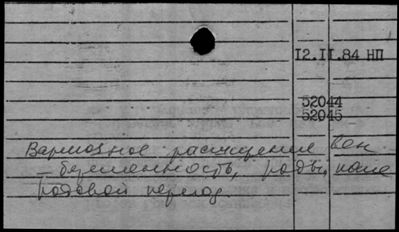 12.II.84 НП
52044
52045
Варикозное расширение вен
– беременность, роды, после
родовой период